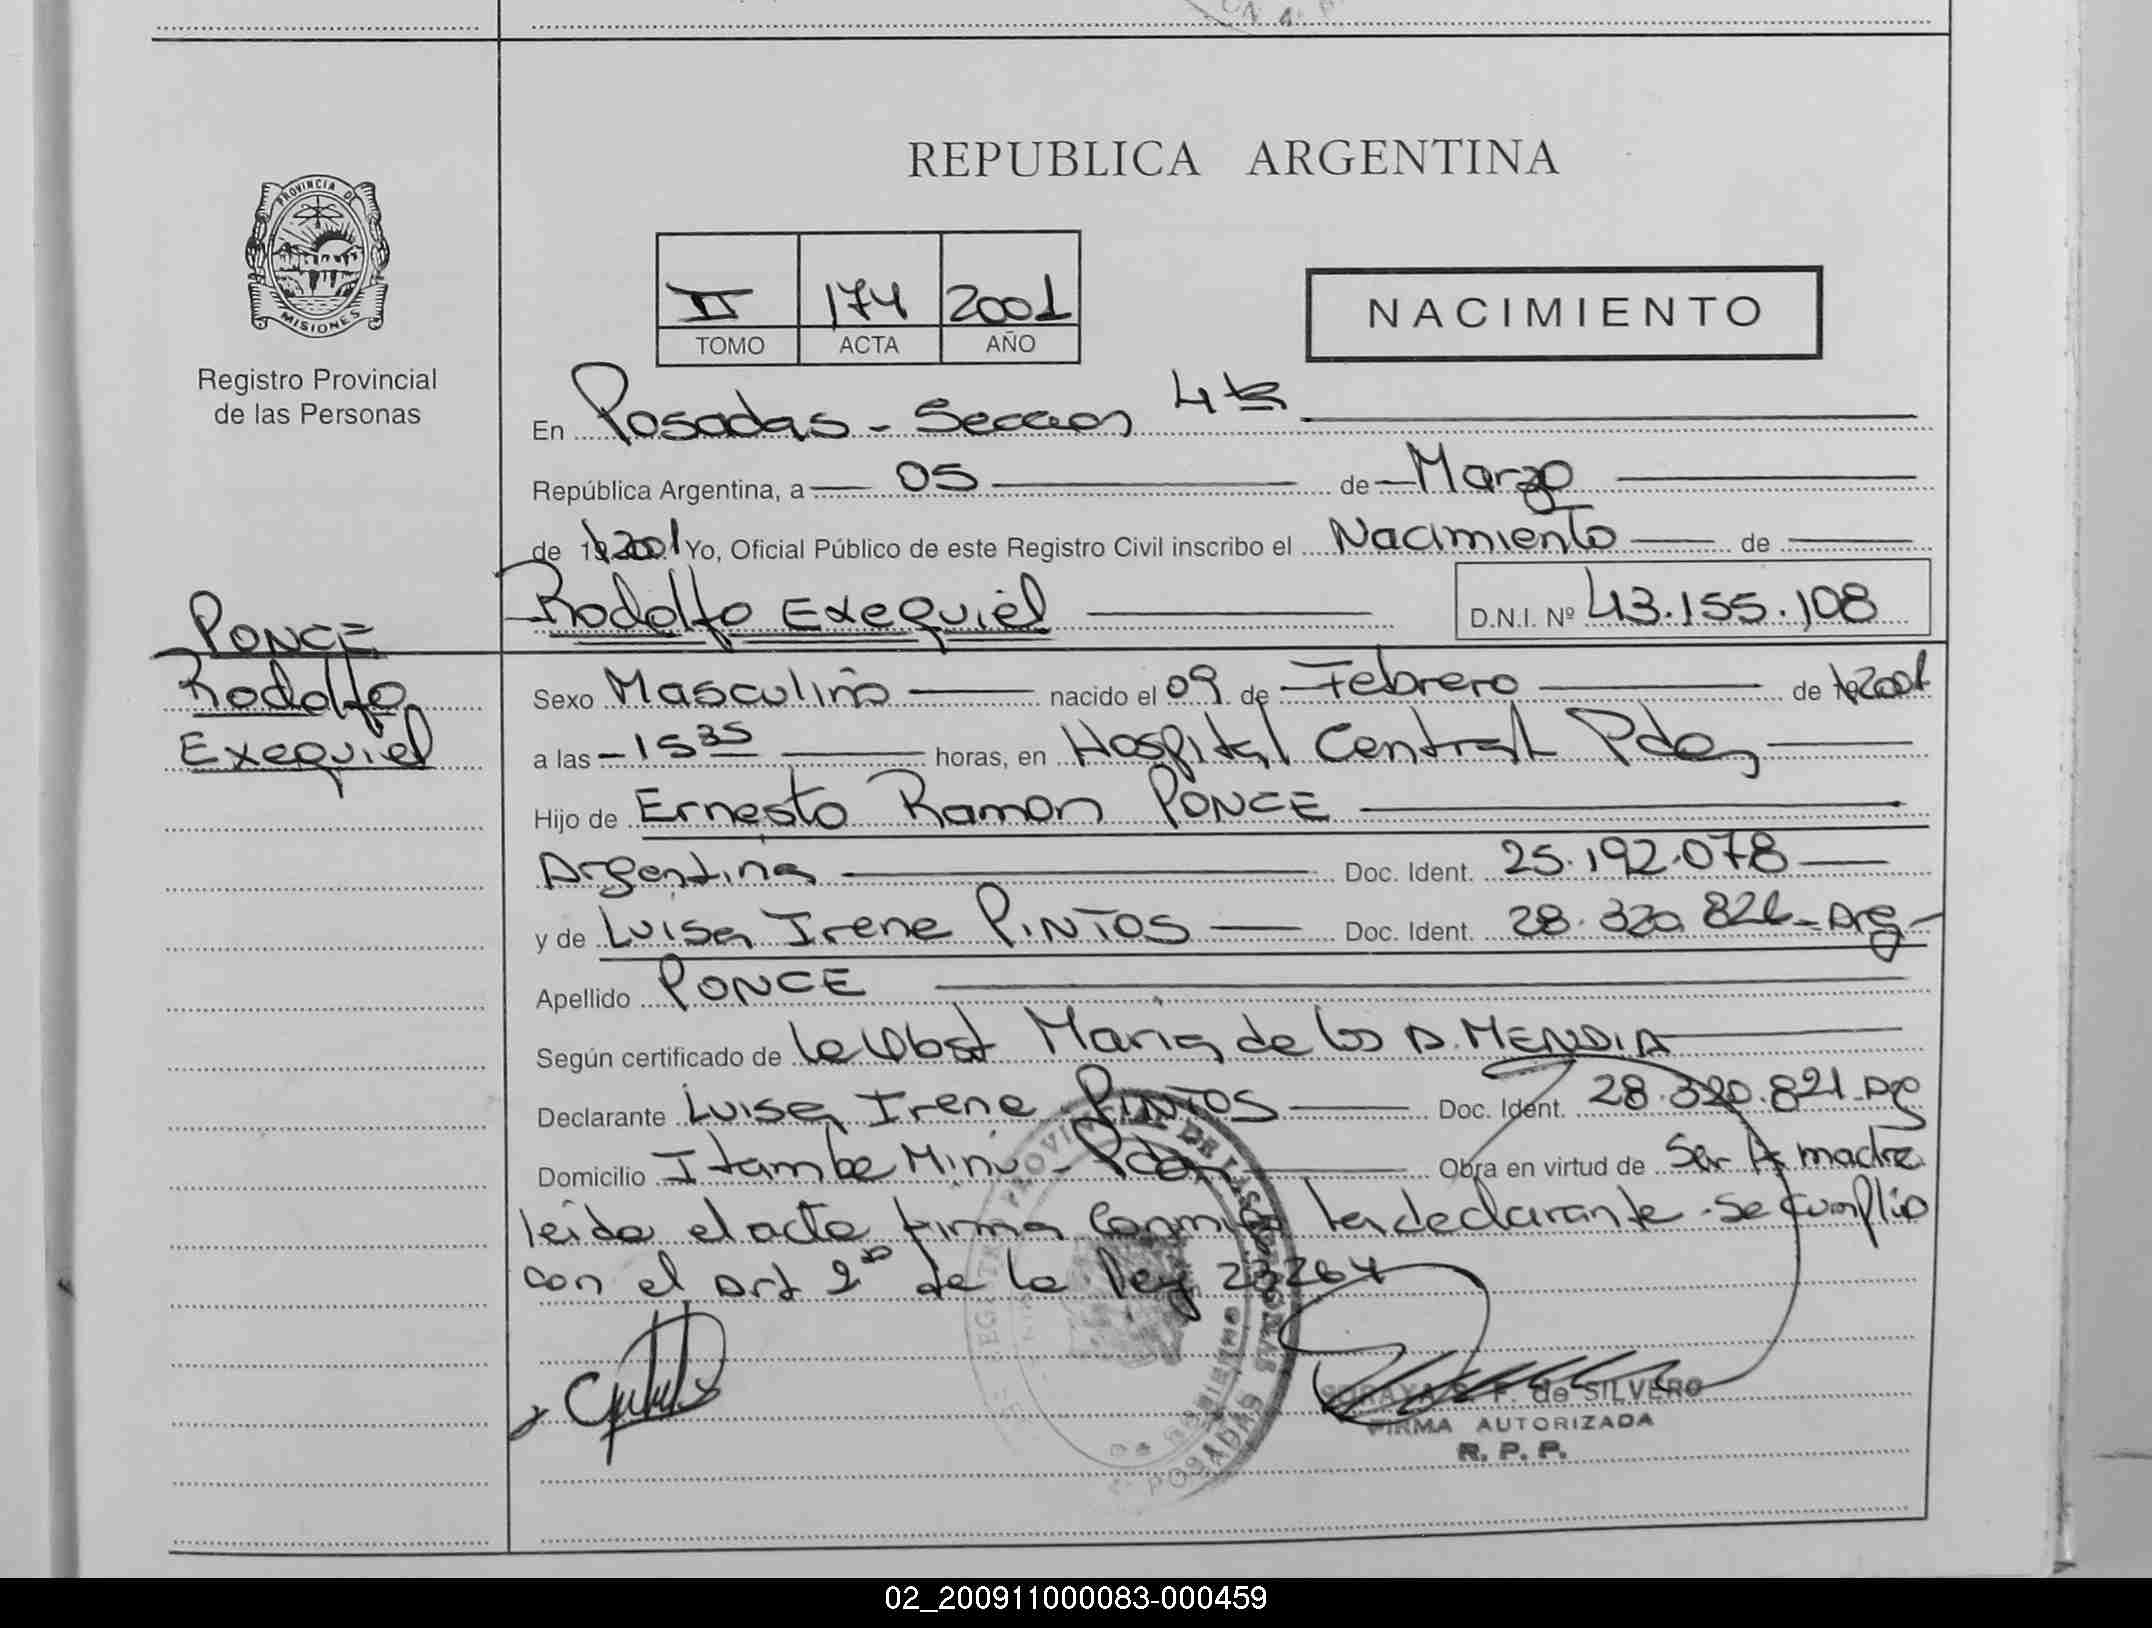 REPUBLICA ARGENTINA
PROVINCIA DE
MISIONES
Registro Provincial
de las Personas
II 174 2001
TOMO ACTA AÑO
NACIMIENTO
En Posadas - Seccion 4ta
República Argentina, a 05 de Marzo
de 19 2001 Yo, Oficial Público de este Registro Civil inscribo el Nacimiento de
Rodolfo Exequiel D.N.I. Nº 43.155.108
PONCE
Rodolfo
Exequiel
Sexo Masculino nacido el 09 de Febrero de 19 2001
a las - 15 35 horas, en Hospital Central Pdas
Hijo de Ernesto Ramon PONCE
Argentina Doc. Ident. 25.192.078
y de Luisa Irene PINTOS Doc. Ident. 28.320.821 - Arg -
Apellido PONCE
Según certificado de la Obst Maria de los A. MENDIA
Declarante Luisa Irene PINTOS Doc. Ident. 28.320.821 - Arg
Domicilio Itambe Mini - Pdas Obra en virtud de Ser la madre
leida el acta firma conmigo la declarante - Se cumplio
con el Art 2º de la ley 23264
REGISTRO PROVINCIAL DE LAS PERSONAS
POSADAS
SORAYA S. F. de SILVERO
FIRMA AUTORIZADA
R. P. P.
02_200911000083-000459